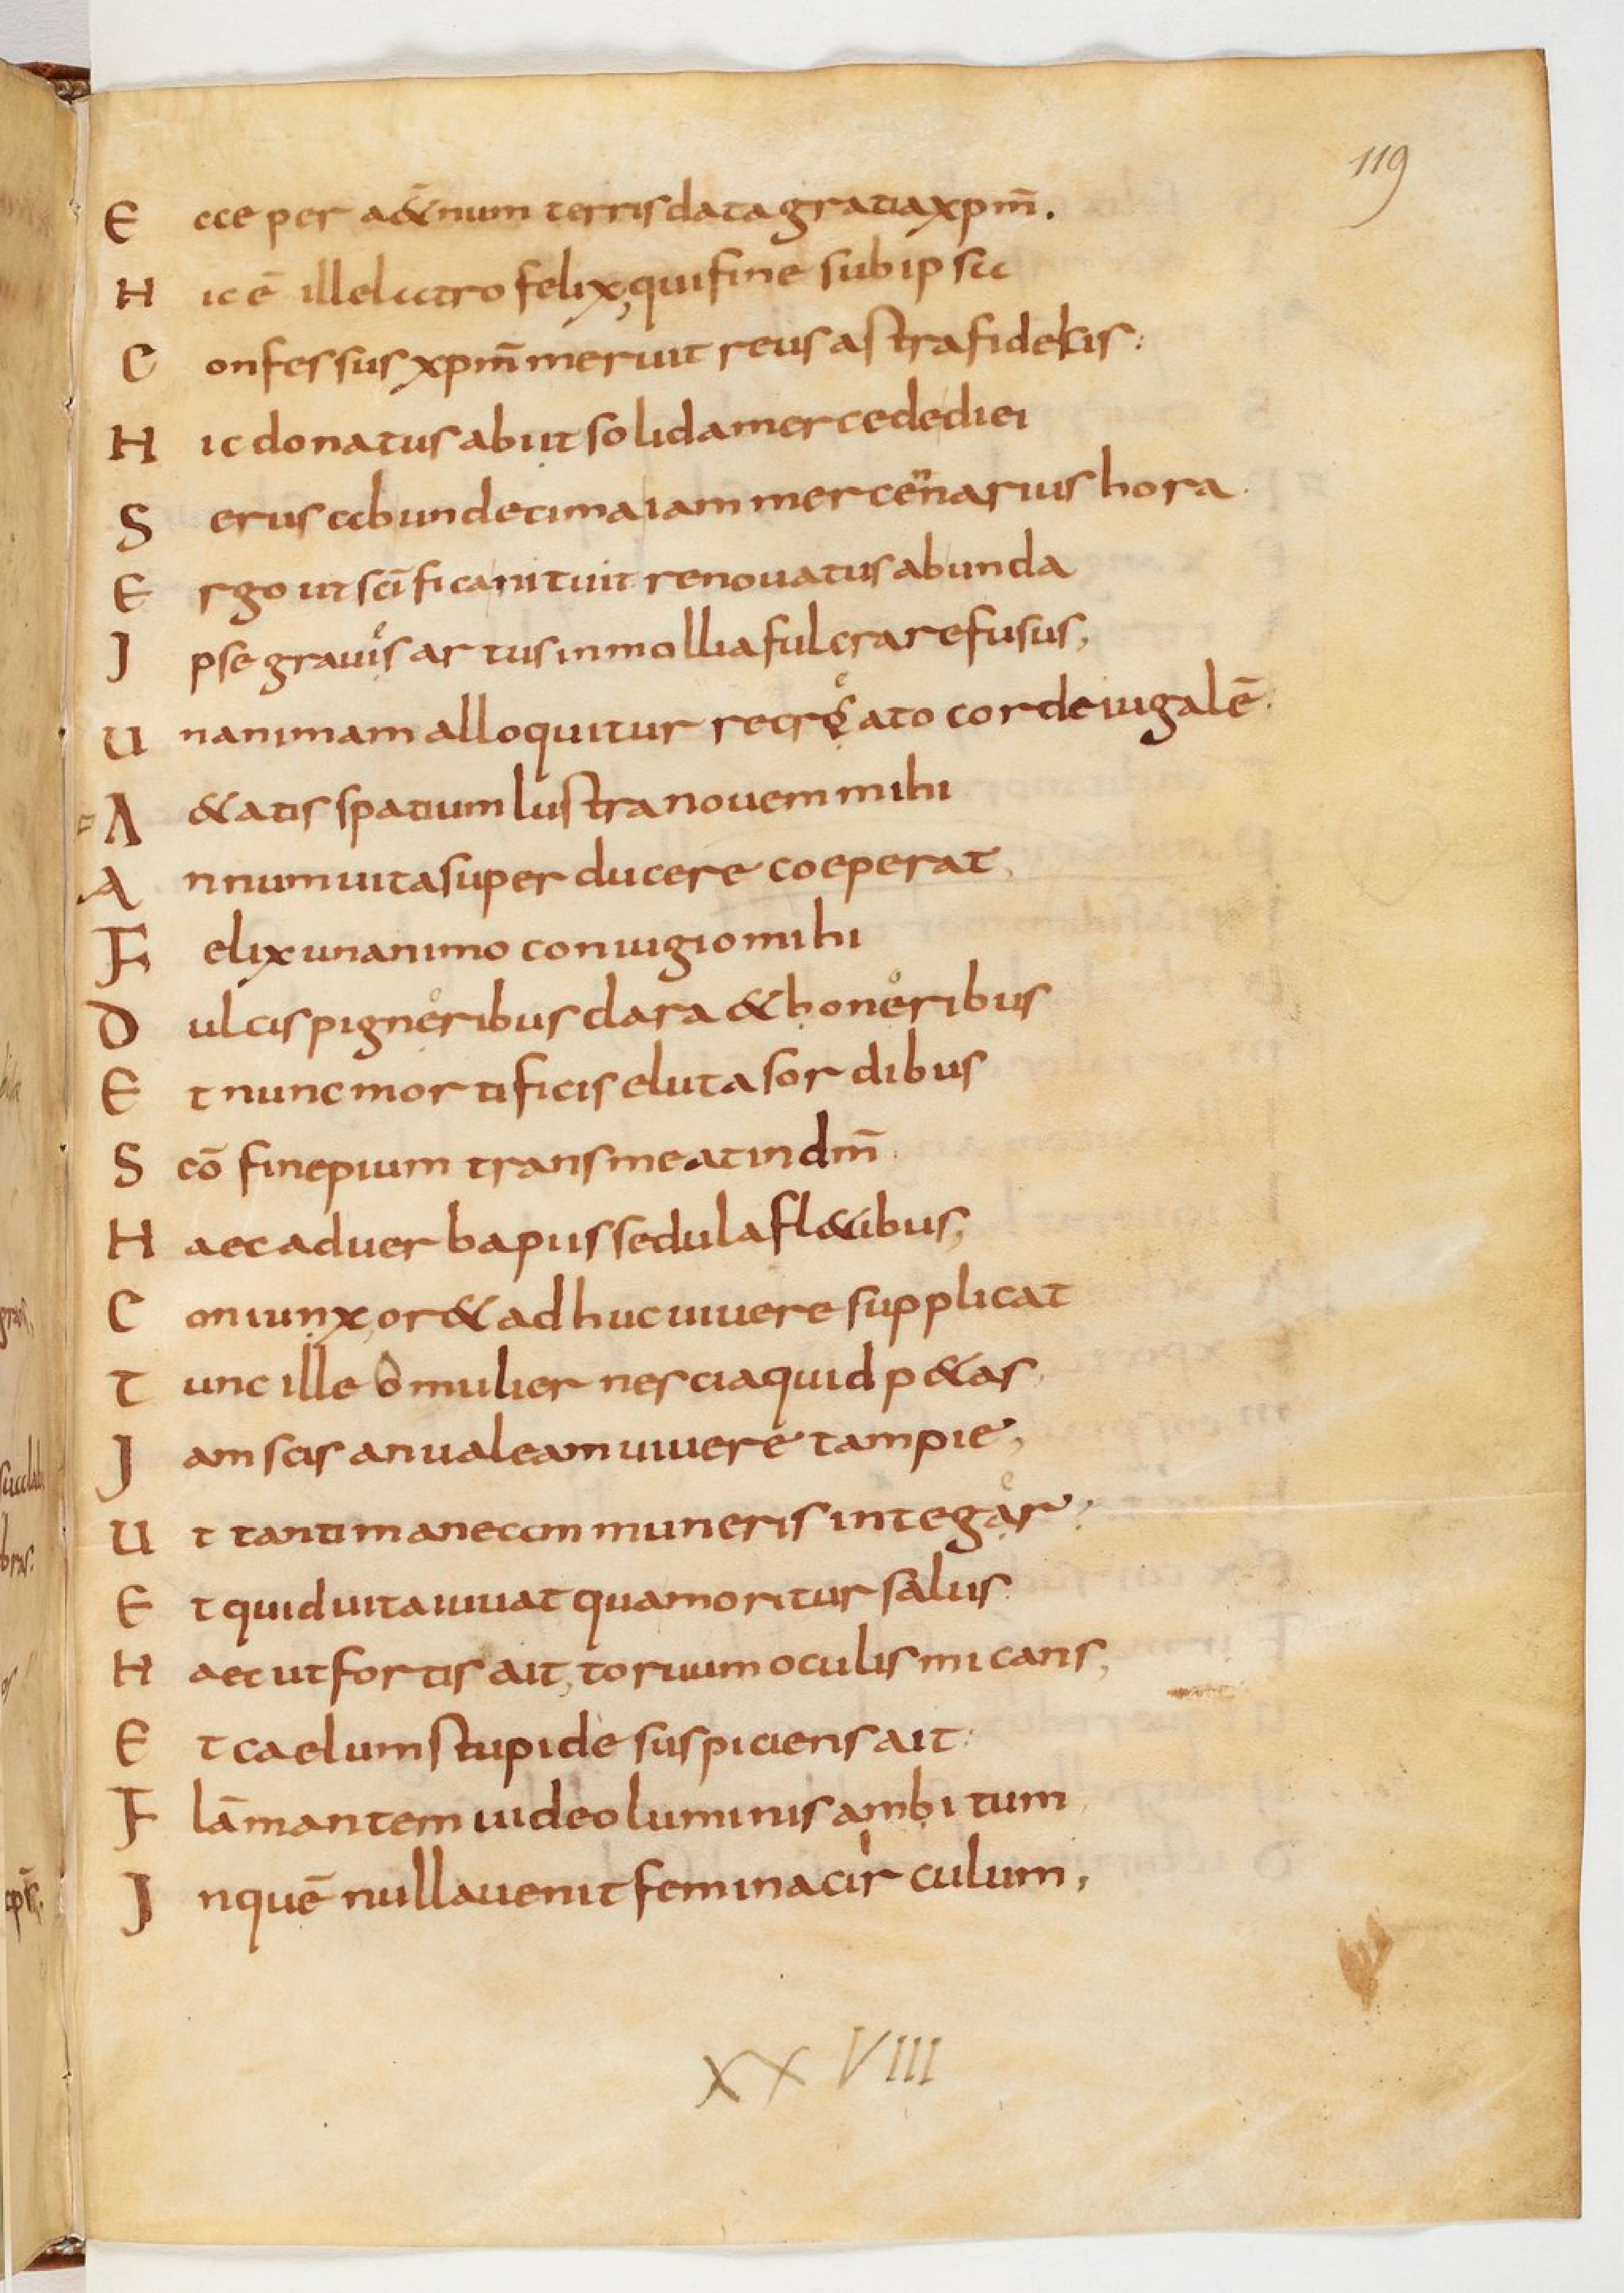 119
E cce per a&ernum terris data gratia xpm̄.
H ic ē ille latro felix, qui fine sub ipsa
C onfessus xpm̄ meruit reus astra fidelis:
H ic donatus abiit solida mercede diei
S erus ab undecima iam mercennarius hora.
E rgo ut sc̄ifica nituit renouatus ab unda
I pse graues artus in mollia fulcra refusus,
U nanimam alloquitur recreato corde iugalē.
A &atis spatium lustra nouem mihi
A nnum uita super ducere coeperat,
F elix unanimo coniugio mihi
D ulcis pigneribus clara & honeribus
E t nunc mortificis eluta sordibus
S cō fine pium transmeat in dm̄.
H aec ad uerba piis sedula fl&ibus,
C oniunx, or& adhuc uiuere supplicat
T unc ille o mulier nescia quid p&as,
I am scis an ualeam uiuere tam pie,
U t tanti maneam muneris integer,
E t quid uita iuuat qua moritur salus.
H aec ut fortis ait, toruum oculis micans,
E t caelum stupide suspiciens ait:
F lāmantem uideo luminis ambitum,
I n quē nulla uenit femina circulum,
XXVIII